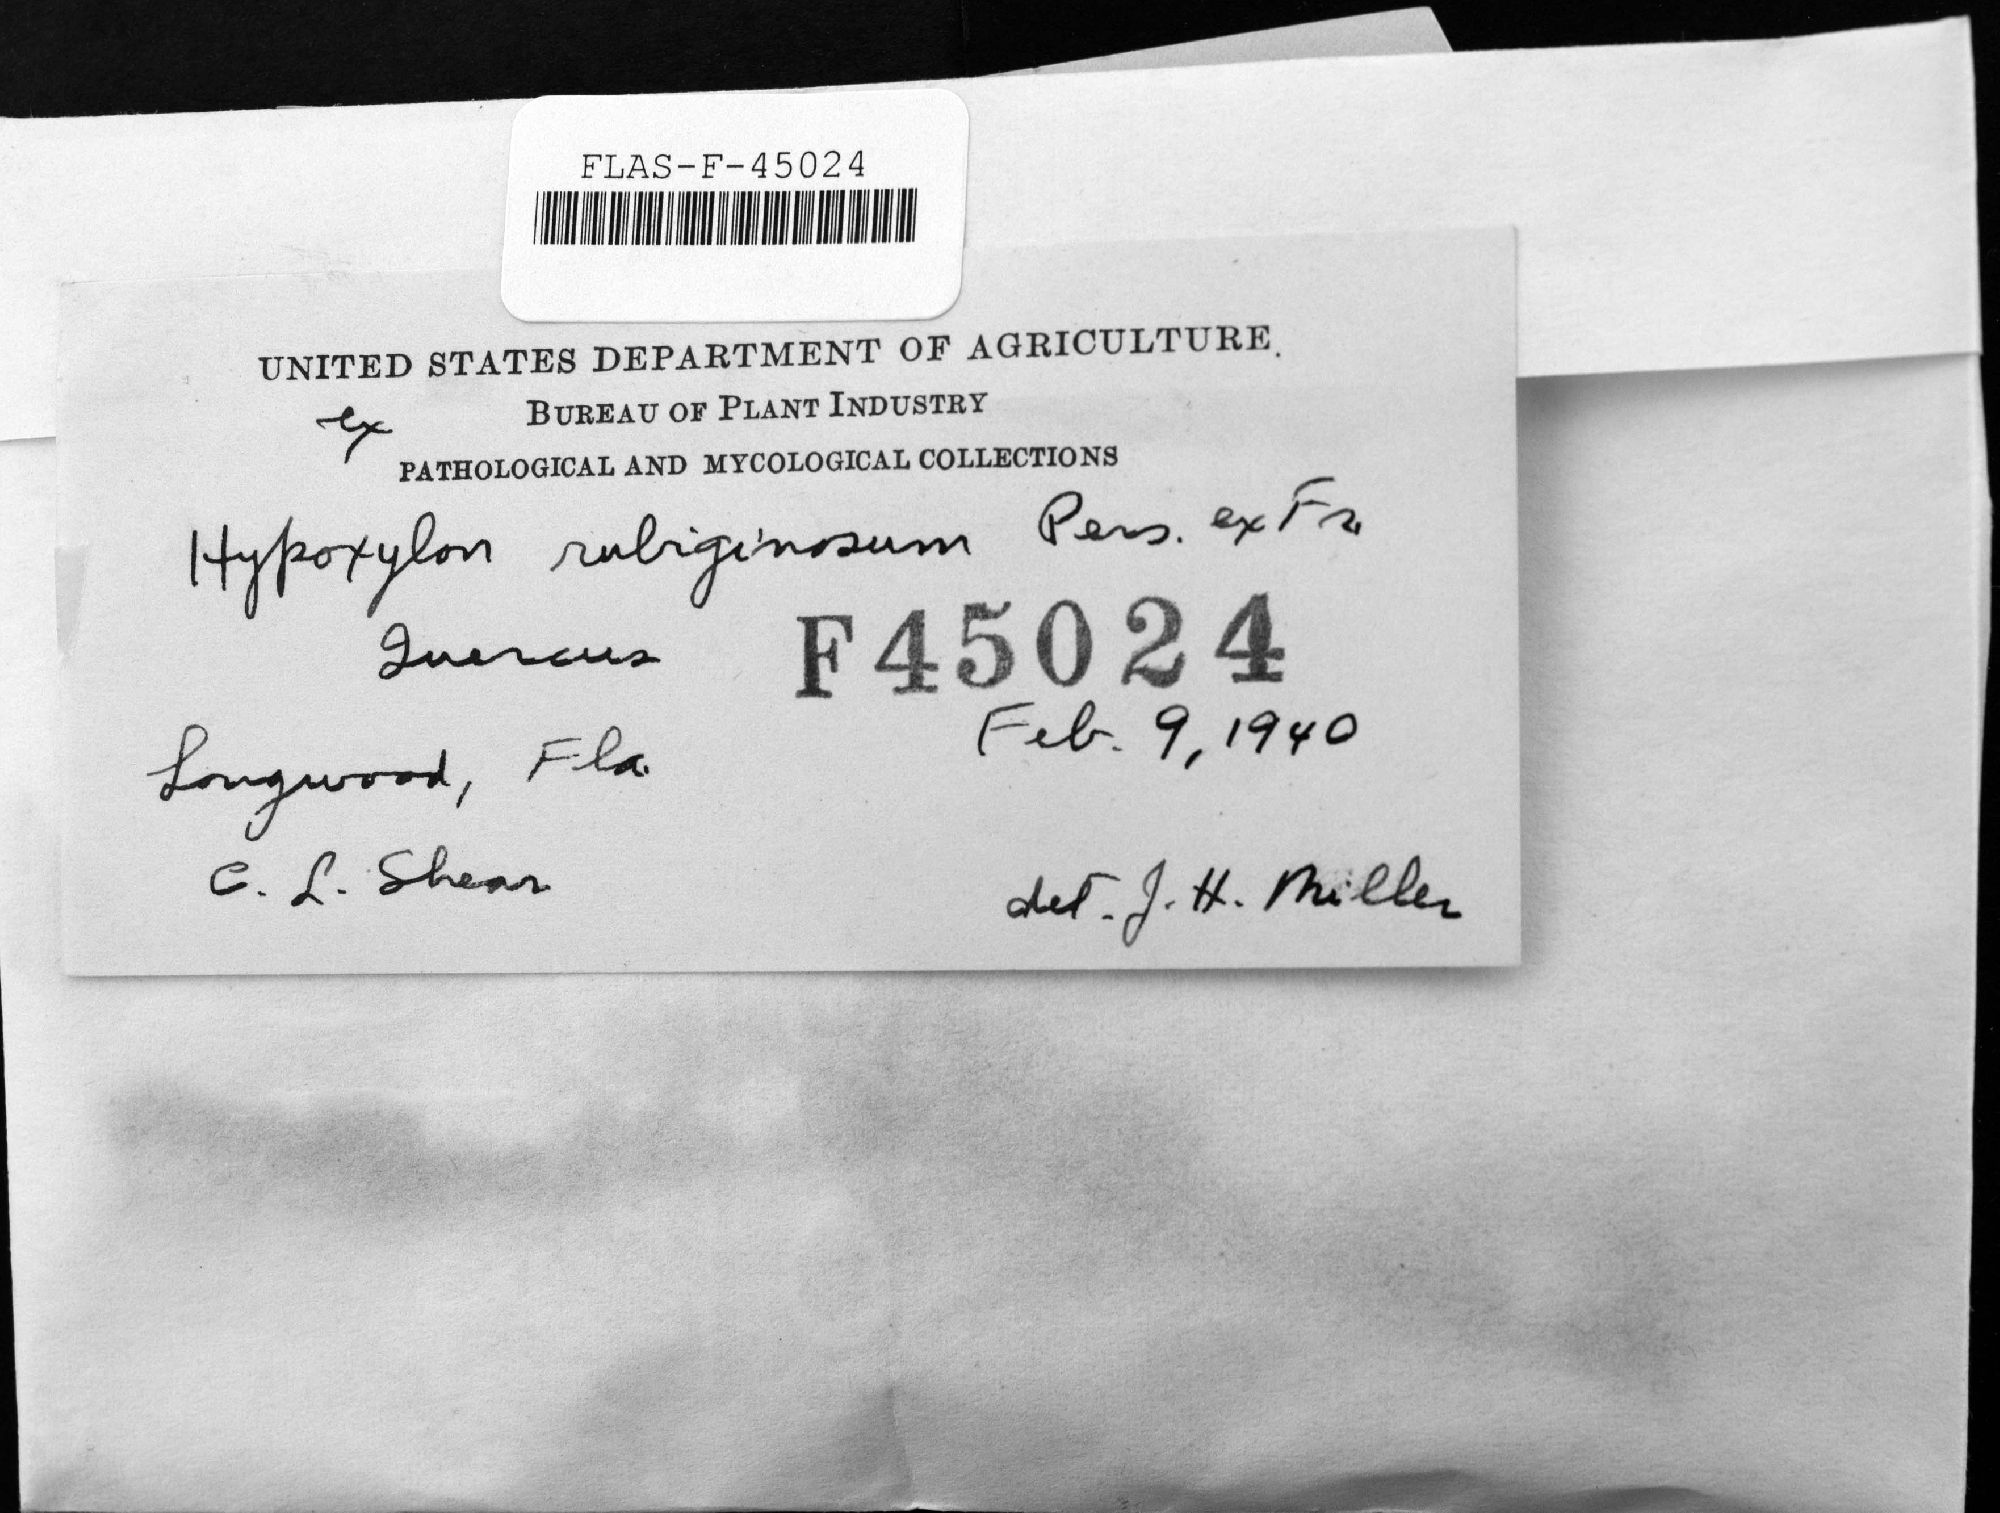 FLAS-F-45024
UNITED STATES DEPARTMENT OF AGRICULTURE.
ex BUREAU OF PLANT INDUSTRY
PATHOLOGICAL AND MYCOLOGICAL COLLECTIONS
Hypoxylon rubiginosum Pers. ex Fr.
Quercus F45024
Longwood, Fla. Feb. 9, 1940
C. L. Shear det. J. H. Miller